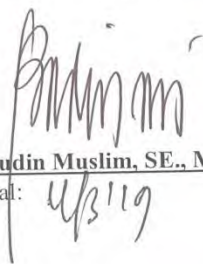 udin Muslim, SE., M
al: 4/3'19